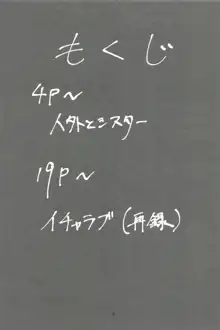 もくじ
4P〜
人外とシスター
19P〜
イチャラブ(再録)